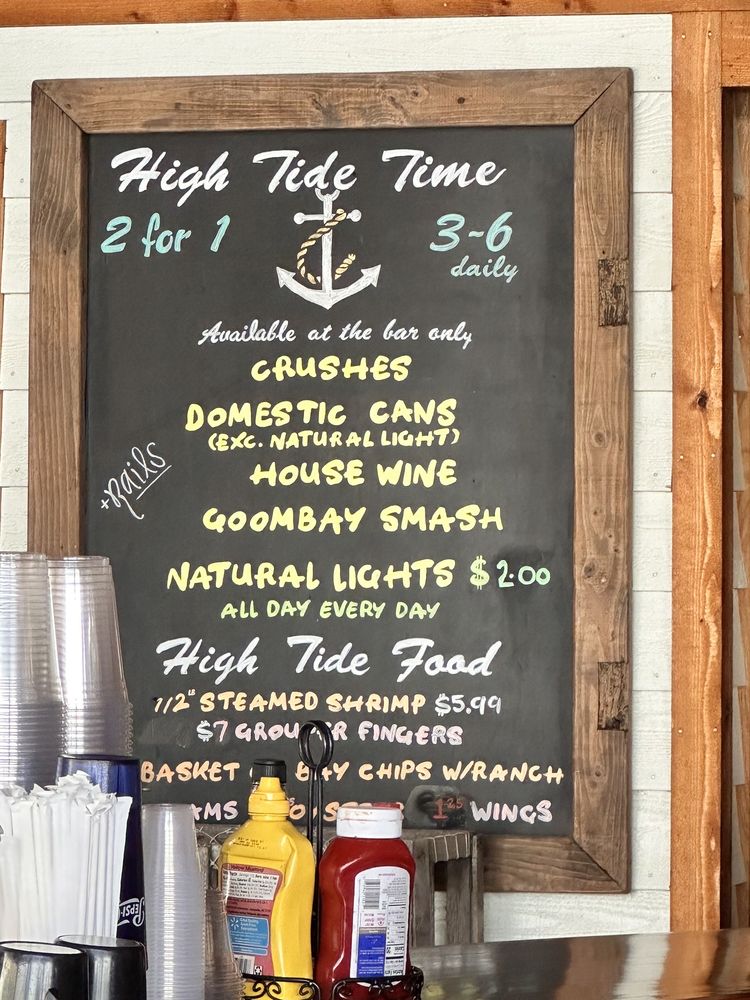 High Tide Time
2 for 1
3-6
daily
Available at the bar only
CRUSHES
DOMESTIC CANS
(EXC. NATURAL LIGHT)
HOUSE WINE
+Rails
GOOMBAY SMASH
NATURAL LIGHTS $2.00
ALL DAY EVERY DAY
High Tide Food
1/2" STEAMED SHRIMP $5.99
$7 FINGERS
BASKET BAY CHIPS W/RANCH
1.25 WINGS
PEPSI
Yellow Mustard